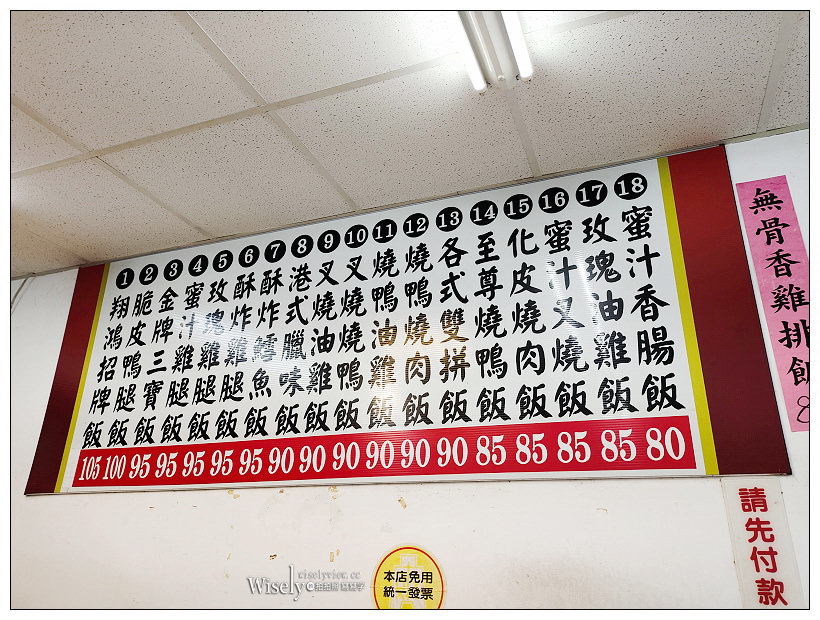 1 翔鴻招牌飯 105
2 脆皮鴨腿飯 100
3 金牌三寶飯 95
4 蜜汁雞腿飯 95
5 玫瑰雞腿飯 95
6 酥炸雞腿飯 95
7 酥炸鱈魚飯 95
8 港式臘味飯 90
9 叉燒油雞飯 90
10 叉燒燒鴨飯 90
11 燒鴨油雞飯 90
12 燒鴨燒肉飯 90
13 各式雙拼飯 90
14 至尊燒鴨飯 85
15 化皮燒肉飯 85
16 蜜汁叉燒飯 85
17 玫瑰油雞飯 85
18 蜜汁香腸飯 80
無骨香雞排飯
請先付款
本店免用
統一發票
wiselyview.cc
Wisely